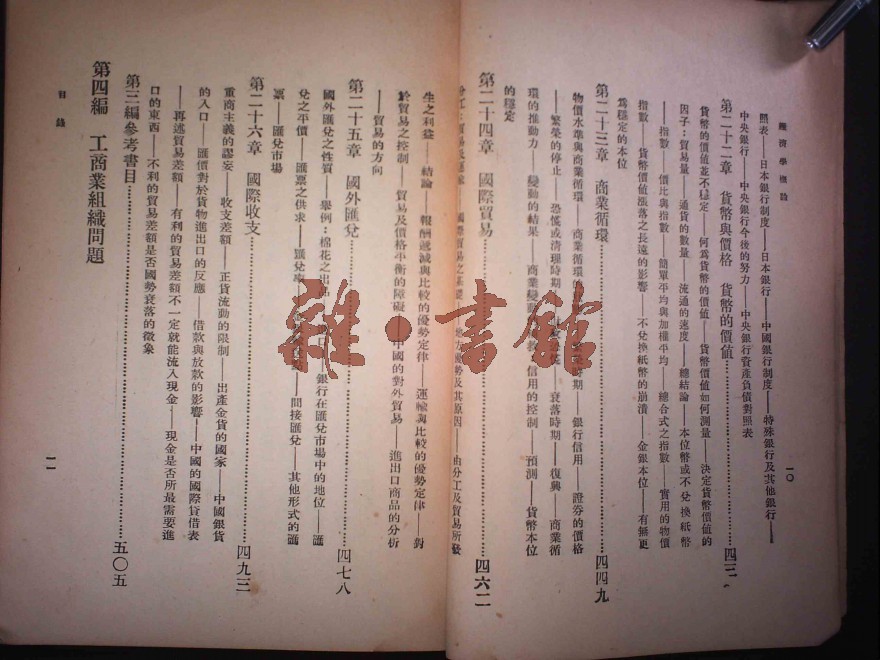 經濟學概論
一〇
照表——日本銀行制度——日本銀行——中國銀行制度——特殊銀行及其他銀行——
中央銀行——中央銀行今後的努力——中央銀行資產負債對照表
第二十二章 貨幣與價格 貨幣的價值
貨幣的價值並不穩定——何爲貨幣的價值——貨幣價值如何測量——決定貨幣價值的
因子:貿易量——通貨的數量——流通的速度——總結論——本位幣或不兌換紙幣
——指數——價比與指數——簡單平均與加權平均——總合式之指數——實用的物價
指數——貨幣價值漲落之長遠的影響——不兌換紙幣的崩潰——金銀本位——有無更
爲穩定的本位
第二十三章 商業循環 四四九
物價水準與商業循環——商業循環的 時期——銀行信用——證券的價格
——繁榮的停止——恐慌或清理時期 衰落時期——復興——商業循
環的推動力——變動的結果——商業變 信用的控制——預測——貨幣本位
的穩定
第二十四章 國際貿易 四六二
分工 國際貿易之基礎 地方優勢及其原因——由分工及貿易所發
生之利益——結論——報酬遞減與比較的優勢定律——運輸與比較的優勢定律——對
於貿易之控制——貿易及價格平衡的障礙 中國的對外貿易——進出口商品的分析
——貿易的方向
第二十五章 國外匯兌 四七八
國外匯兌之性質——舉例:棉花之出 口 銀行在匯兌市場中的地位——匯
兌之平價——匯票之供求——匯兌率 間接匯兌——其他形式的匯
票——匯兌市場
第二十六章 國際收支 四九三
重商主義的謬妄——收支差額——正貨流動的限制——出產金貨的國家——中國銀貨
的入口——匯價對於貨物進出口的反應——借款與放款的影響——中國的國際貸借表
——再述貿易差額——有利的貿易差額不一定就能流入現金——現金是否所最需要進
口的東西——不利的貿易差額是否國勢衰落的徵象
第三編參考書目 五〇五
第四編 工商業組織問題
目錄
一一
雜·書館